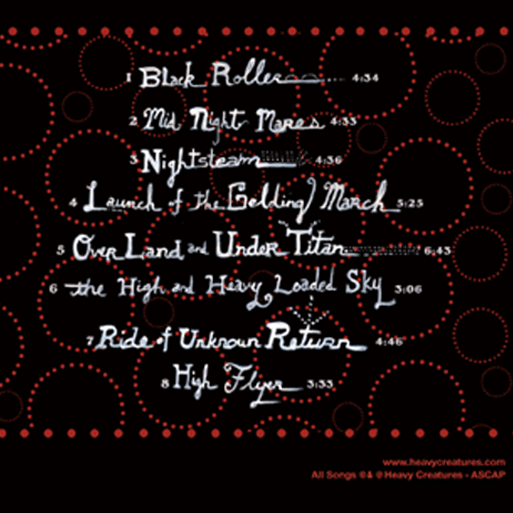 1 Black Roller 4:34
2 Mid Night Mares 4:33
3 Nightsteam 4:36
4 Launch of the Gelding March 5:25
5 Over Land and Under Titan 6:43
6 the High and Heavy Loaded Sky 3:06
7 Ride of Unknown Return 4:46
8 High Flyer 3:33
www.heavycreatures.com
All Songs ©& ℗ Heavy Creatures - ASCAP